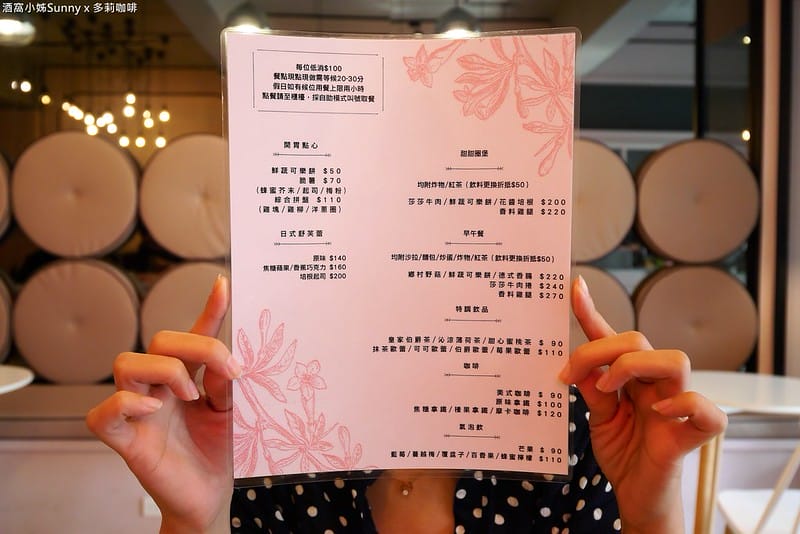 酒窩小姊Sunny x 多莉咖啡
每位低消$100
餐點現點現做需等候20-30分
假日如有候位用餐上限兩小時
點餐請至櫃檯，採自助模式叫號取餐
開胃點心
鮮蔬可樂餅 $50
脆薯 $70
(蜂蜜芥末/起司/梅粉)
綜合拼盤 $110
(雞塊/雞柳/洋蔥圈)
日式舒芙蕾
原味 $140
焦糖蘋果/香蕉巧克力 $160
培根起司 $200
甜甜圈堡
均附炸物/紅茶（飲料更換折抵$50）
莎莎牛肉/鮮蔬可樂餅/花醬培根 $200
香料雞腿 $220
早午餐
均附沙拉/麵包/炒蛋/炸物/紅茶（飲料更換折抵$50）
鄉村野菇/鮮蔬可樂餅/德式香腸 $220
莎莎牛肉捲 $240
香料雞腿 $270
特調飲品
皇家伯爵茶/沁涼薄荷茶/甜心蜜桃茶 $ 90
抹茶歐蕾/可可歐蕾/伯爵歐蕾/莓果歐蕾 $110
咖啡
美式咖啡 $ 90
原味拿鐵 $100
焦糖拿鐵/榛果拿鐵/摩卡咖啡 $120
氣泡飲
芒果 $ 90
藍莓/蔓越梅/覆盆子/百香果/蜂蜜檸檬 $110